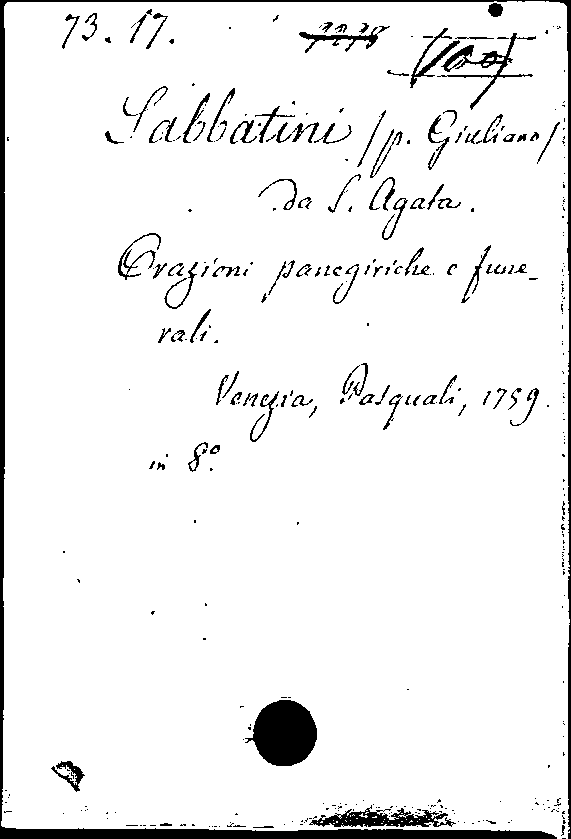 73. 17.
Sabbatini /p. Giuliano/
da S. Agata.
Orazioni panegiriche e fune-
rali.
Venezia, Pasquali, 1759.
in 8º.